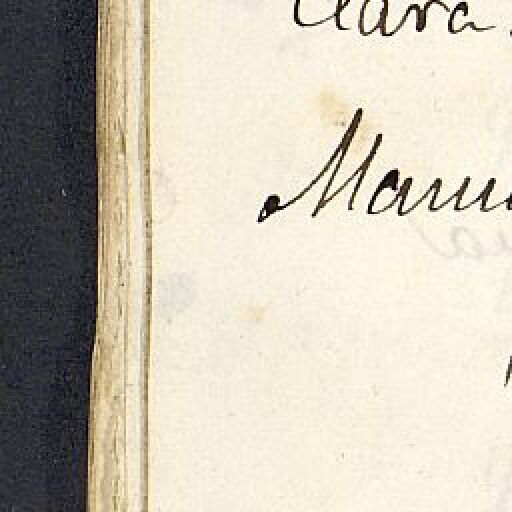 Clara
Manu